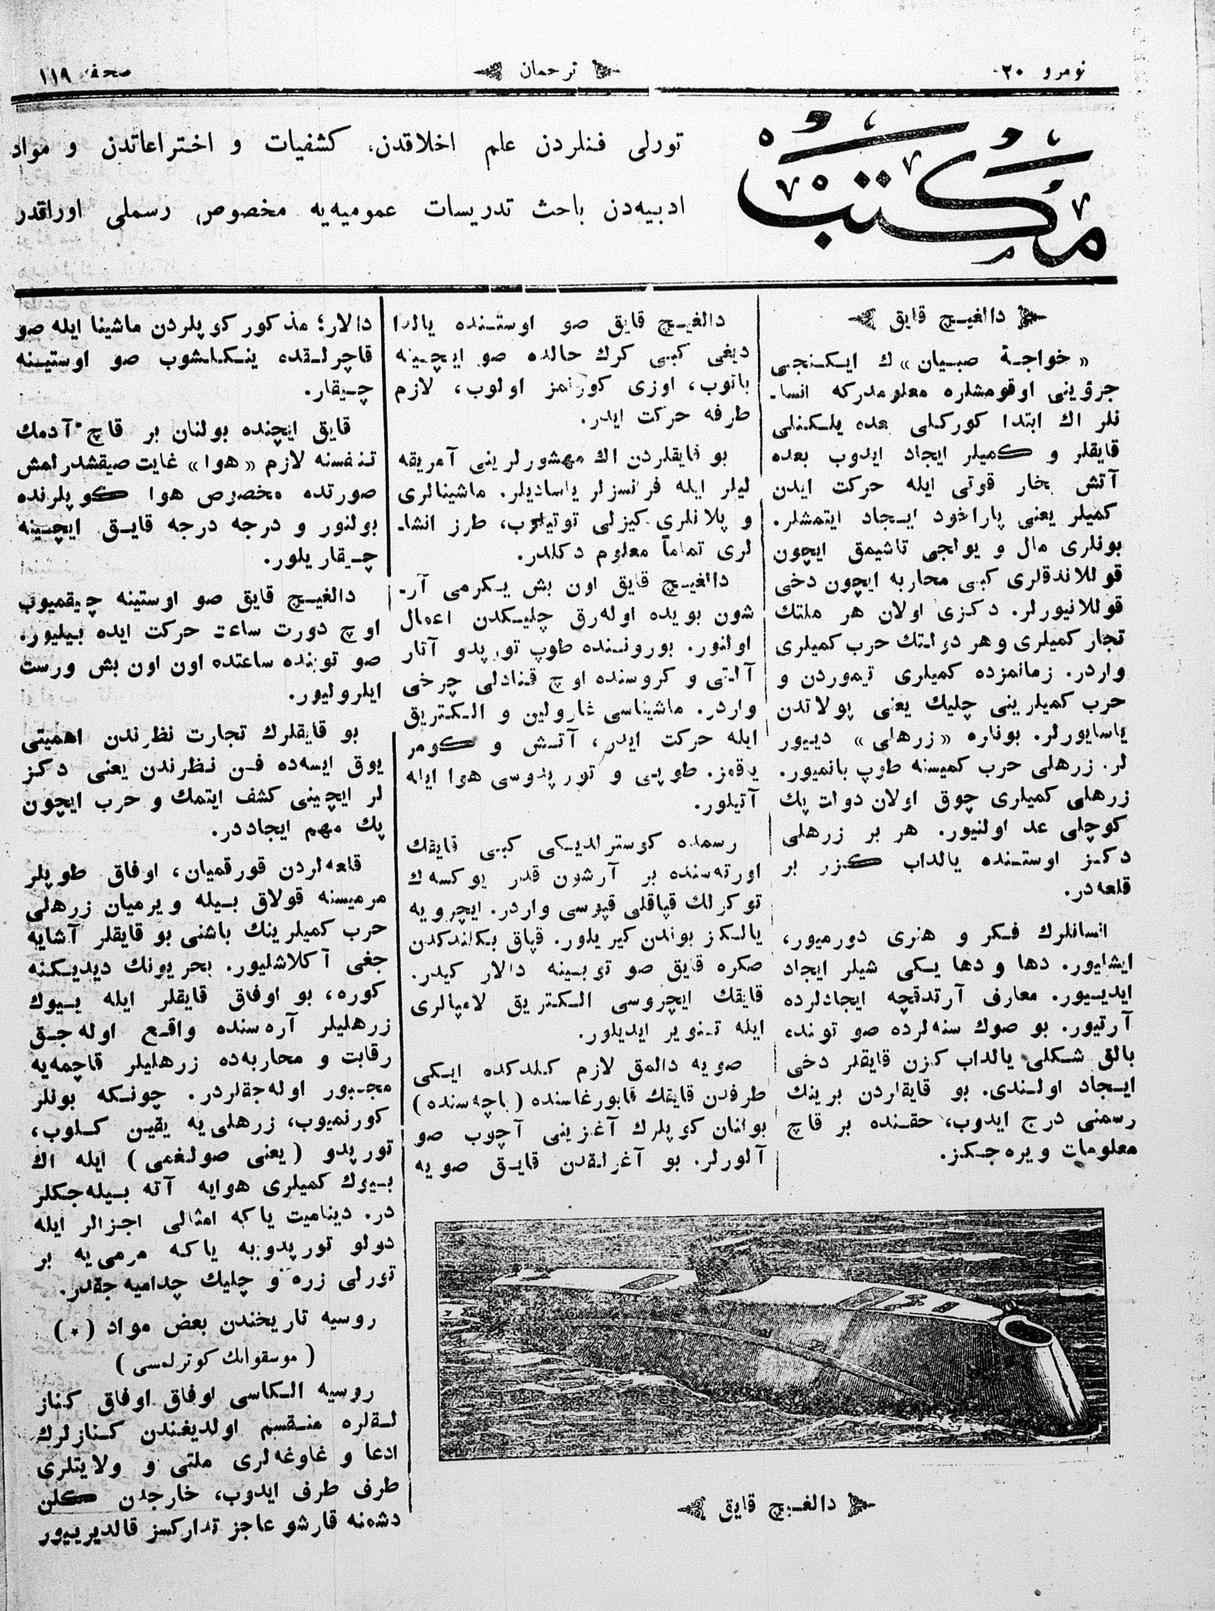 نومرو ٢٠
ترجمان
صحفه ١١٩
مكتب
تورلی فنلردن علم اخلاقدن، كشفیات و اختراعاتدن و مواد
ادبیه‌دن باحث تدریسات عمومیه‌یه مخصوص رسملی اوراقدر
دالغیچ قایق
« خواجهٔ صبیان» ك ایكنجی
جزؤینی اوقومشلره معلومدركه انسا-
نلر اك ابتدا كوركلی بعده یلكنلی
قایقلر و كمیلر ایجاد ایدوب بعده
آتش بخار قوتی ایله حركت ایدن
كمیلر یعنی پاراخود ایجاد ایتمشلر.
بونلری مال و یولجی تاشیمق ایچون
قوللاندقلری كبی محاربه ایچون دخی
قوللانیورلر. دكزی اولان هر ملتك
تجار كمیلری و هر دولتك حرب كمیلری
واردر. زمانمزده كمیلری تیموردن و
حرب كمیلرینی چلیك یعنی پولاتدن
یاسایورلر. بوناره «زرهلی» دییور
لر. زرهلی حرب كمیسنه طوپ باتمیور.
زرهلی كمیلری چوق اولان دولت پك
كوچلی عد اولنیور. هر بر زرهلی
دكز اوستنده یالداب كزر بر
قلعه‌در.
انسانلرك فكر و هنری دورمیور،
ایشلیور. دها و دها یكی شیلر ایجاد
ایدییور. معارف آرتدقچه ایجادلرده
آرتیور. بو صوك سنه‌لرده صو توبنده،
بالق شكلی یالداب كزن قایقلر دخی
ایجاد اولندی. بو قایقلردن برینك
رسمنی درج ایدوب، حقنده بر قاچ
معلومات ویره‌جكز.
دالغیچ قایق صو اوستنده یالدا
دیغی كبی كرك حالده صو ایچینه
باتوب، اوزی كورنمز اولوب، لازم
طرفه حركت ایدر.
بو قایقلردن اك مشهورلرینی آمریقه
لیلر ایله فرانسزلر یاسادیلر. ماشینالری
و پلانلری كیزلی توتیلوب، طرز انشا-
لری تماماً معلوم دكلدر.
دالغیچ قایق اون بش یكرمی آر-
شون بویده اوله‌رق چلیكدن اعمال
اولنور. بورونـنده طوپ تورپدو آتار
آلتی و كروسنده اوچ قنادلی چرخی
واردر. ماشیناسی غازولین و الكتریق
ایله حركت ایدر، آتش و كومر
یاقمز. طوپی و تورپدوسی هوا ایله
آتیلور.
رسمده كوسترلدیكی كبی قایقك
اورته‌سنده بر آرشون قدر یوكسك
توكرلك قپاقلی قپوسی واردر. ایچرویه
یالكز بوندن كیریلور. قپاق بكلندكدن
صكره قایق صو توبینه دالار كیدر.
قایقك ایچروسی الكتریق لامپالری
ایله تنویر ایدیلور.
صویه دالمق لازم كلدكده ایكی
طرفدن قایقك قابورغاسنده (باچه‌سنده)
بولنان كوپلرك آغزینی آچوب صو
آلورلر. بو آغرلقدن قایق صویه
دالار؛ مذكور كوپلردن ماشینا ایله صو
قاچرلقده ینكلشوب صو اوستینه
چیقار.
قایق ایچنده بولنان بر قاچ آدمك
تنفسنه لازم «هوا» غایت صیقشدرلمش
صورتده مخصوص هوا كوپلرنده
بولنور و درجه درجه قایق ایچینه
چیقاریلور.
دالغیچ قایق صو اوستینه چیقمیوب
اوچ دورت ساعت حركت ایده بیلیور.
صو توبنده ساعتده اون اون بش ورست
ایلرولیور.
بو قایقلرك تجارت نظرندن اهمیتی
یوق ایسه‌ده فن نظرندن یعنی دكز
لر ایچینی كشف ایتمك و حرب ایچون
پك مهم ایجاددر.
قلعه‌لردن قورقمیان، اوفاق طوپلر
مرمیسنه قولاق بیله ویرمیان زرهلی
حرب كمیلرینك باشنی بو قایقلر آشایه
جغی آكلاشلیور. بحریونك دیدیكنه
كوره، بو اوفاق قایقلر ایله بیوك
زرهلیلر آره‌سنده واقع اوله‌جق
رقابت و محاربه‌ده زرهلیلر قاچمه‌یه
مجبور اوله‌جقلردر. چونكه بونلر
كورنمیوب، زرهلی‌یه یقین كلوب،
تورپدو (یعنی صولغمی) ایله اك
بیوك كمیلری هوایه آته بیله‌جكلر
در. دینامیت یاكه امثالی اجزالر ایله
دولو تورپدوبه یاكه مرمی‌یه بر
تورلی زره و چلیك چدامیه‌جقدر.
روسیه تاریخندن بعض مواد (*)
( موسقوانك كوترلمسی )
روسیه الكاسی اوفاق اوفاق كناز
لقلره منقسم اولدیغندن كنازلرك
ادعا و غاوغه‌لری ملتی و ولایتلری
طرف طرف ایدوب، خارجدن كلن
دشمنه قارشو عاجز تداركسز قالدیرییور
دالغیچ قایق